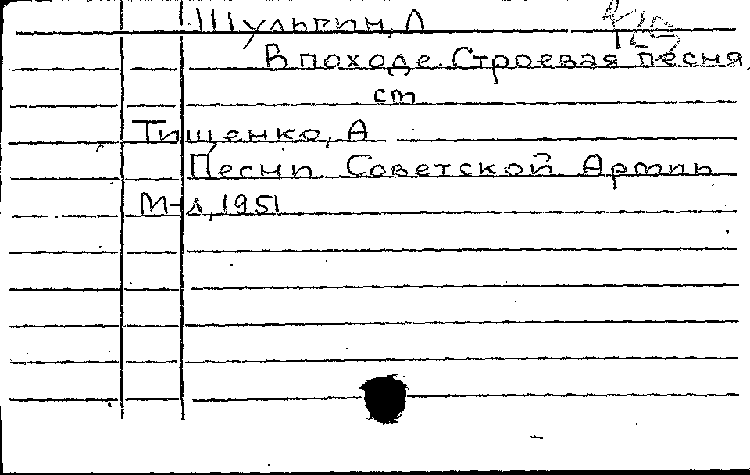 Шульгин, Л
В походе. Строевая песня,
ст
Тищенко, А
Песни Советской Армии
М-л, 1951